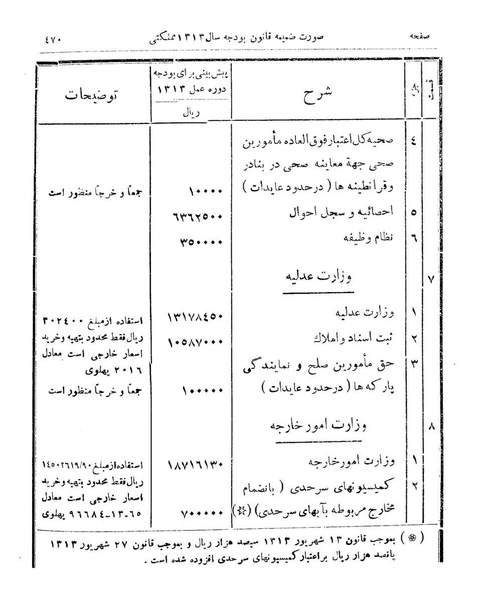 صفحه صورت ضمیمه قانون بودجه سال ۱۳۱۳ مملکتی ۴۷۰
قسمت جزء شرح پیش‌بینی برای بودجه دوره عمل ۱۳۱۳ توضیحات
ریال
۴ صحیه کل اعتبار فوق العاده مأمورین
صحی جهة معاینه صحی در بنادر
و قرانطینه ها ( در حدود عایدات ) ۱۰۰۰۰ جمعاً و خرجاً منظور است
۵ احصائیه و سجل احوال ۶۳۶۲۵۰۰
۶ نظام وظیفه ۳۵۰۰۰۰
۷ وزارت عدلیه
۱ وزارت عدلیه ۱۳۱۷۸۴۵۰ استفاده از مبلغ ۳۰۲۴۰۰
۲ ثبت اسناد و املاک ۱۰۵۸۷۰۰۰ ریال فقط محدود بتهیه و خرید
اسعار خارجی است معادل
۳ حق مأمورین صلح و نمایندگی ۲۰۱۶ پهلوی
پارکه ها ( در حدود عایدات ) ۱۰۰۰۰۰ جمعاً و خرجاً منظور است
۸ وزارت امور خارجه
۱ وزارت امور خارجه ۱۸۷۱۶۱۳۰ استفاده از مبلغ ۱۴۵۰۲۶۱۹/۹۰
۲ کمیسیونهای سرحدی ( بانضمام ریال فقط محدود بتهیه و خرید
اسعار خارجی است معادل
مخارج مربوطه بآبهای سرحدی) (※) ۷۰۰۰۰۰ ۹۶۶۸۴-۱۳-۶۵ پهلوی
( ※ ) بموجب قانون ۱۳ شهریور ۱۳۱۳ سیصد هزار ریال و بموجب قانون ۲۷ شهریور ۱۳۱۳
پانصد هزار ریال بر اعتبار کمیسیونهای سرحدی افزوده شده است .